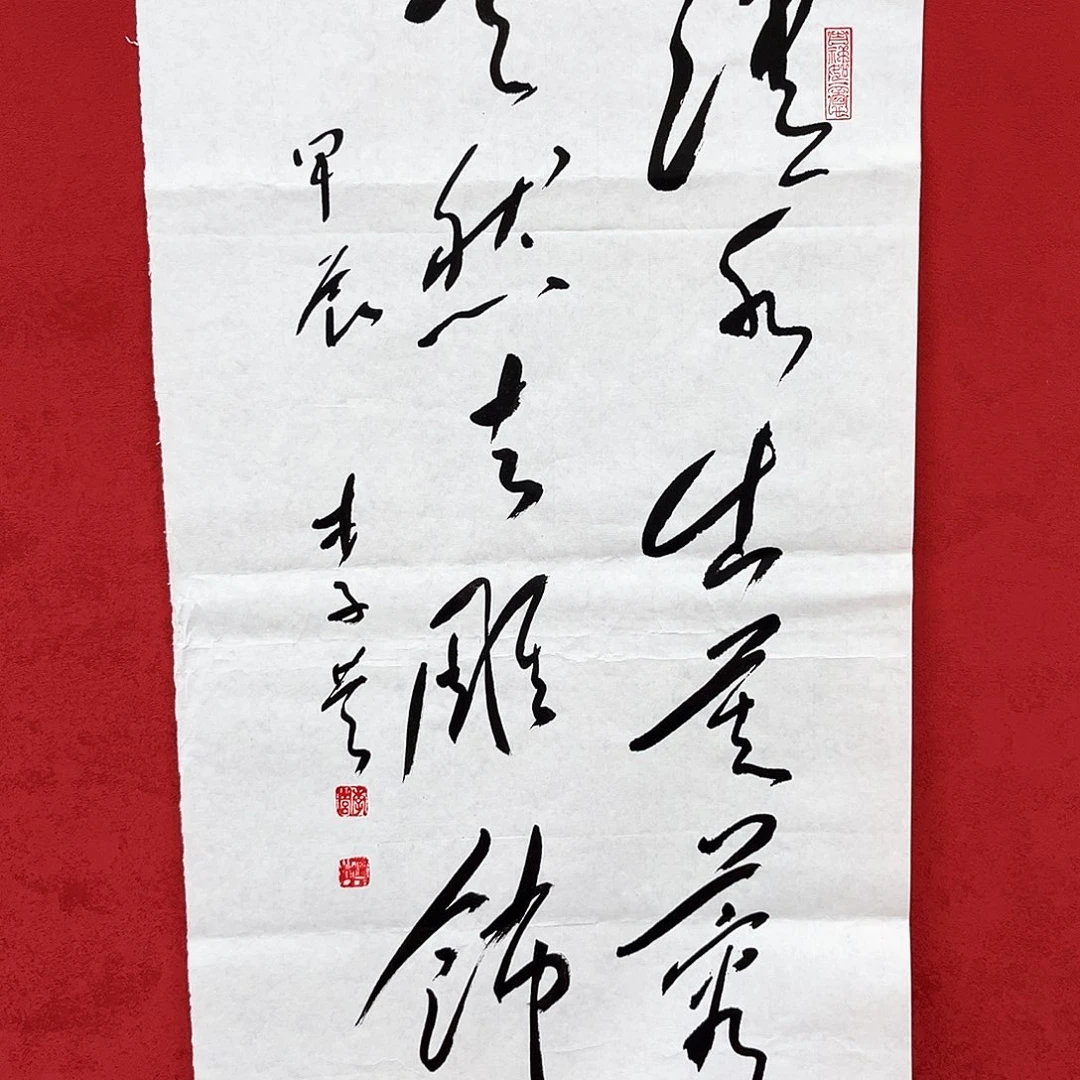 清水出芙蓉
天然去雕飾
甲辰
李